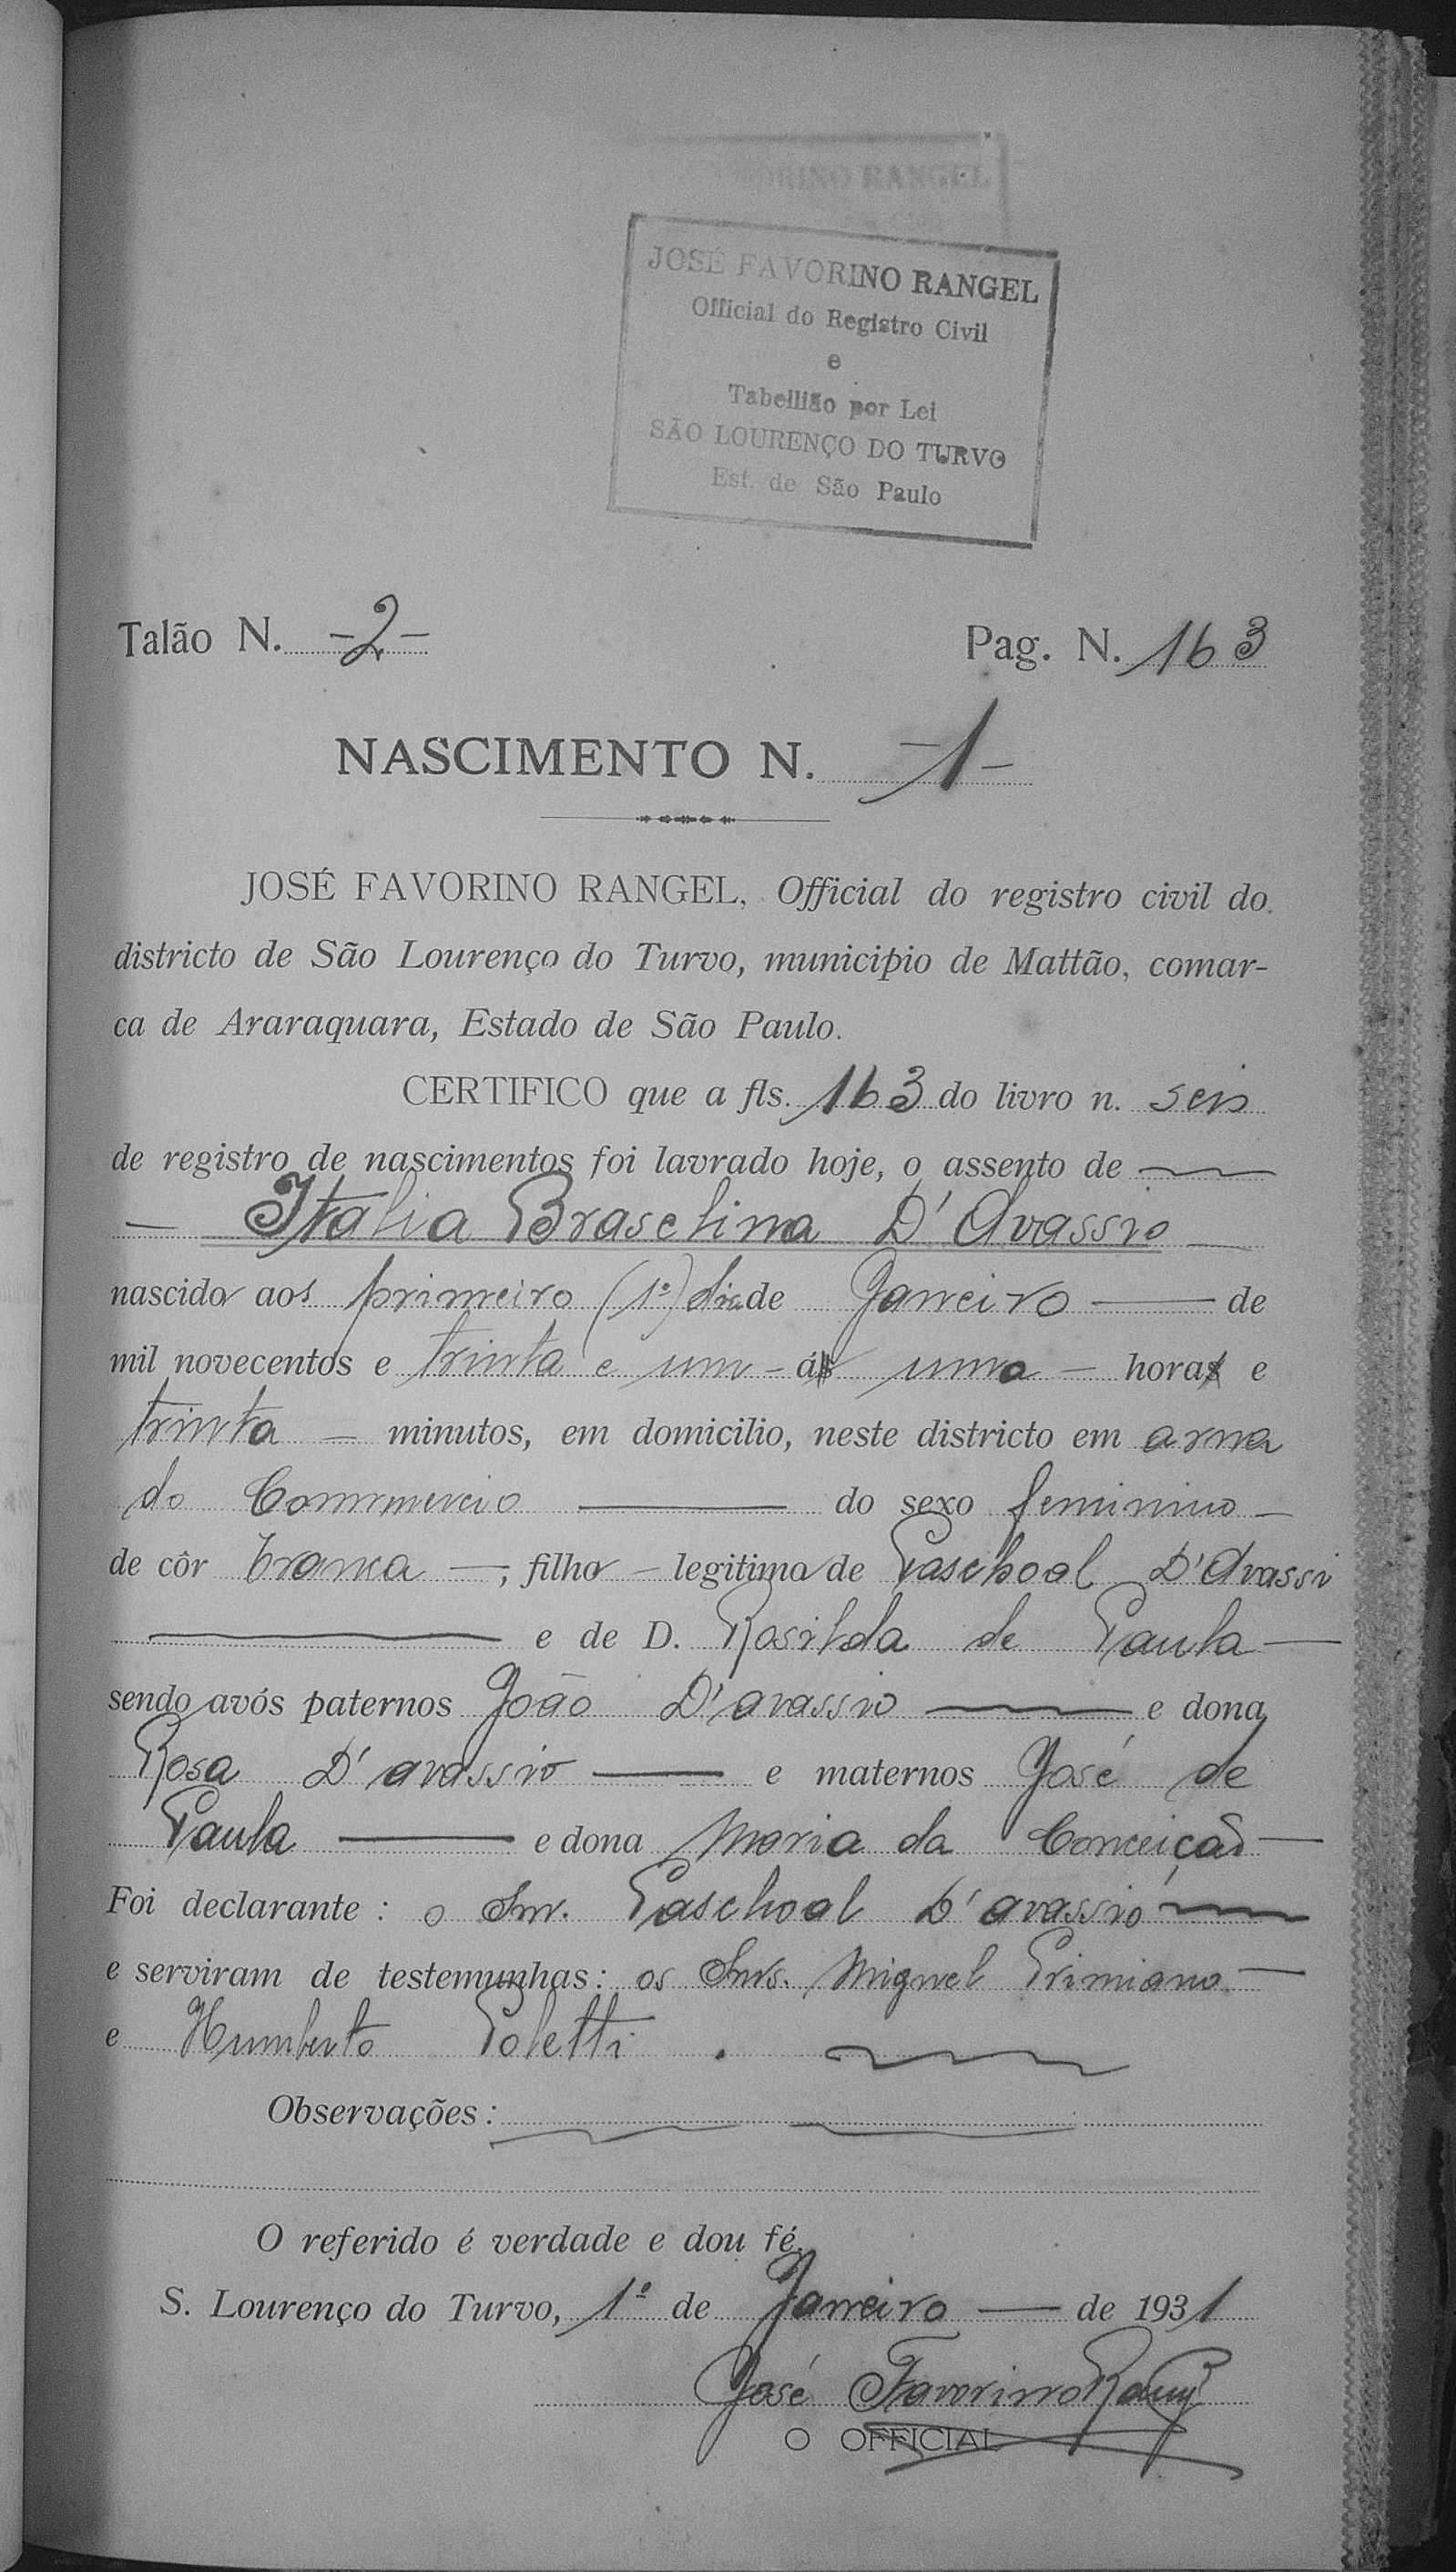 ORINO RANGEL
JOSÉ FAVORINO RANGEL
Official do Registro Civil
e
Tabellião por Lei
SÃO LOURENÇO DO TURVO
Est. de São Paulo
Talão N. -2- Pag. N. 163
NASCIMENTO N. -1-
JOSÉ FAVORINO RANGEL, Official do registro civil do
districto de São Lourenço do Turvo, municipio de Mattão, comar-
ca de Araraquara, Estado de São Paulo.
CERTIFICO que a fls. 163 do livro n. seis
de registro de nascimentos foi lavrado hoje, o assento de
Italia Braselina D'Avassio
nascida aos primeiro (1º) dia de Janeiro de
mil novecentos e trinta e um - á uma - hora e
trinta - minutos, em domicilio, neste districto em a rua
do Commercio do sexo feminino
de côr branca -, filha - legitima de Paschoal D'Avassi
e de D. Rosilda de Paula
sendo avós paternos João D'avassio e dona
Rosa D'avassio e maternos José de
Paula e dona Maria da Conceição
Foi declarante: o Snr. Paschoal D'avassio
e serviram de testemunhas: os Snrs. Miguel Primiano
e Humberto Poletti.
Observações:
O referido é verdade e dou fé.
S. Lourenço do Turvo, 1º de Janeiro de 1931
José Favorino Rangel
O OFFICIAL